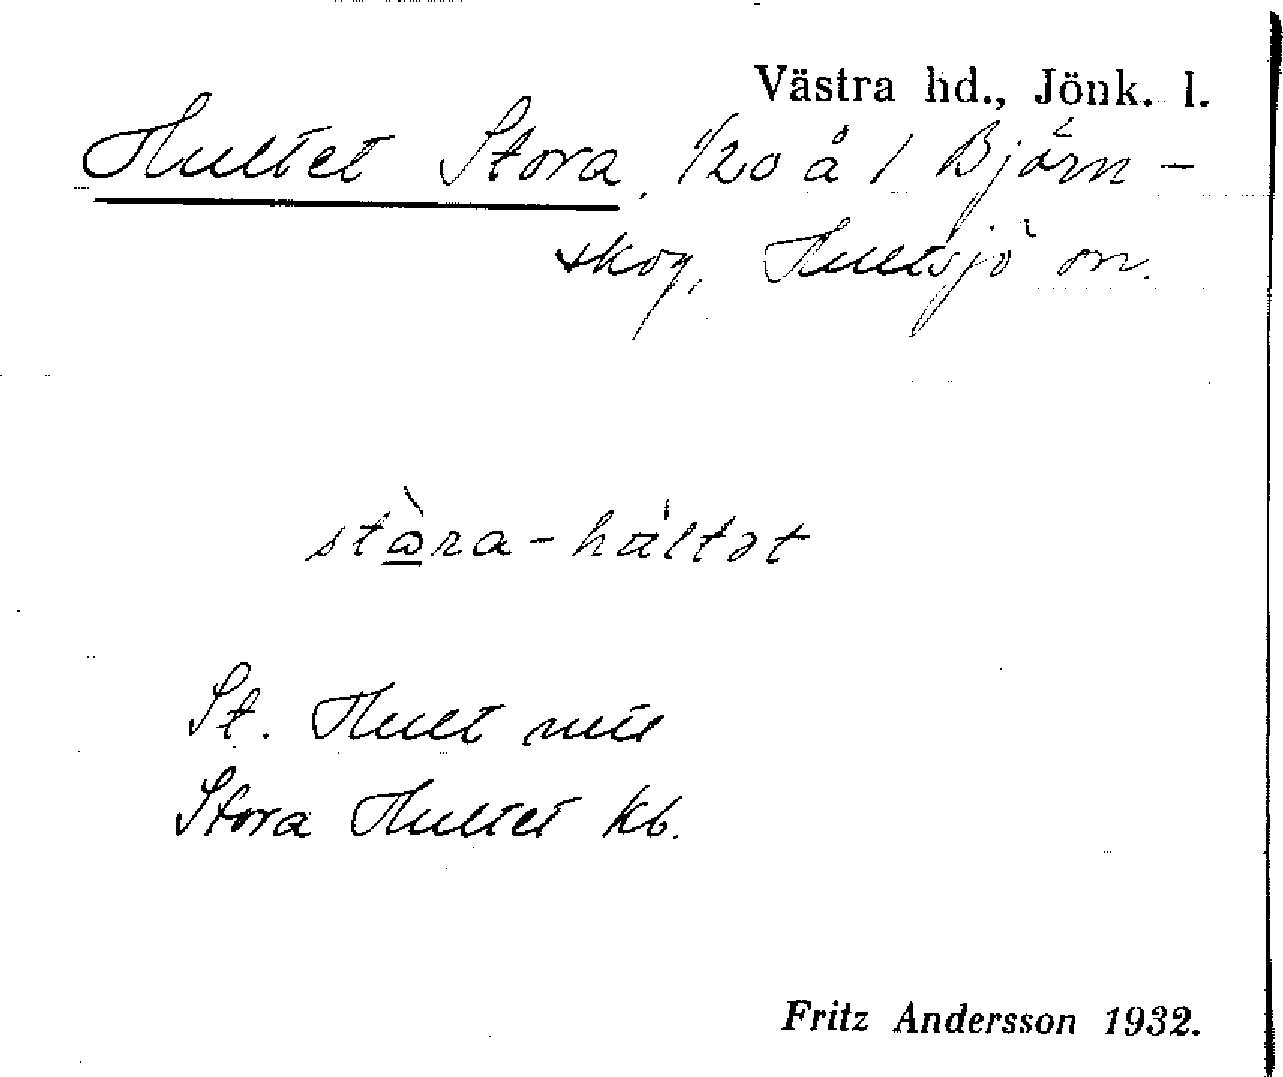 Västra hd., Jönk. l.
Hultet Stora, 1/20 å 1 Björn-
skog, Hultsjö sn.
stòra-húltət
St. Hult
Stora Hultet kb.
Fritz Andersson 1932.